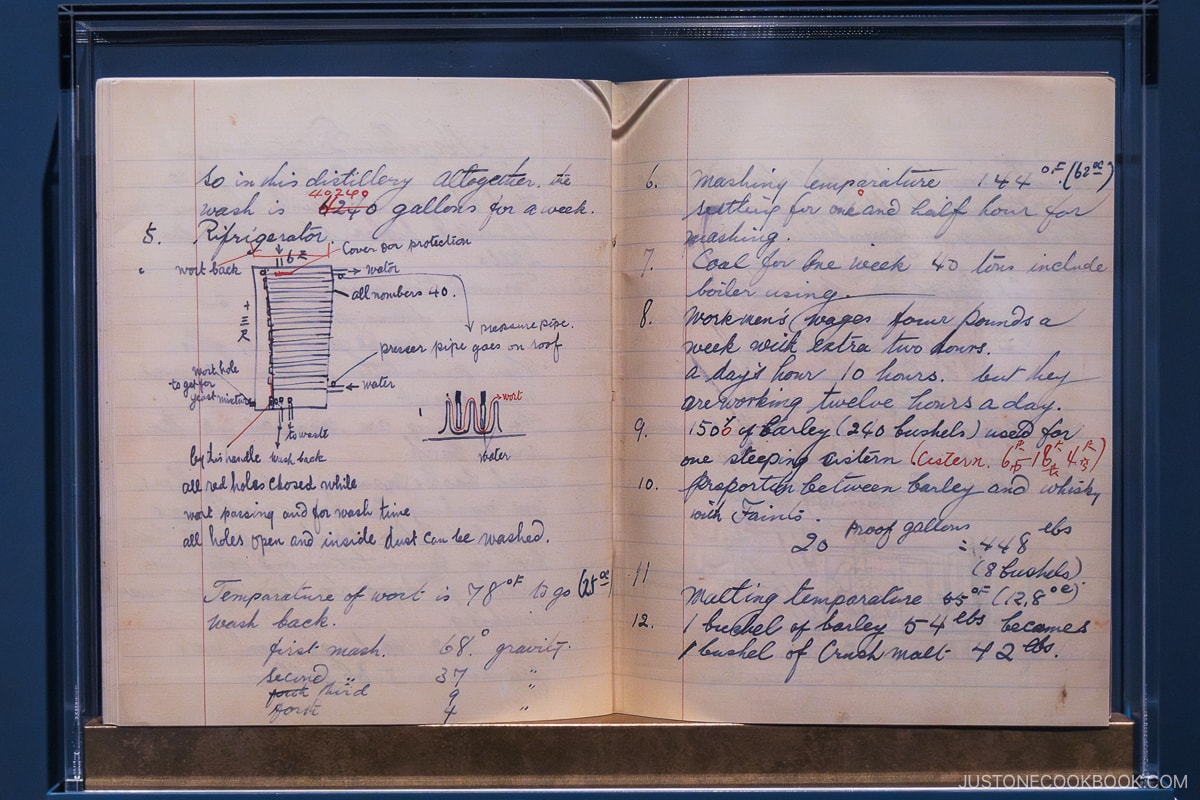 So in this distillery altogether. the
40240
wash is 6240 gallons for a week.
5. Rifrigerator.
Cover for protection
116
wort back
→ water
all numbers 40.
十三尺
pressure pipe.
presser pipe goes on roof
wort hole
to get for
yeast mixture
← water
wort
water
to waste
by this handle wash back
all red holes closed while
wort passing and for wash time
all holes open and inside dust can be washed.
Temperature of wort is 78°F to go (25°C
wash back.
first mash. 68° gravity.
second " 37 "
third 9 "
forst 4 "
6. Mashing temparature 144°F. (62°C)
settling for one and half hour for
mashing.
7. Coal for one week 40 tons include
boiler using.
8. Workmen's wages four pounds a
week with extra two hours.
a day's hour 10 hours. but they
are working twelve hours a day.
9. 150 of barley (240 bushels) used for
one steeping cistern (Cistern.
10. Proportin between barley and whisky
with Faints.
20 Proof gallons = 448 lbs
(8 bushels)
11
Malting temparature 55°F (12.8°C)
12. 1 bushel of barley 54 lbs becomes
1 bushel of Crush malt 42 lbs.
JUSTONECOOKBOOK.COM